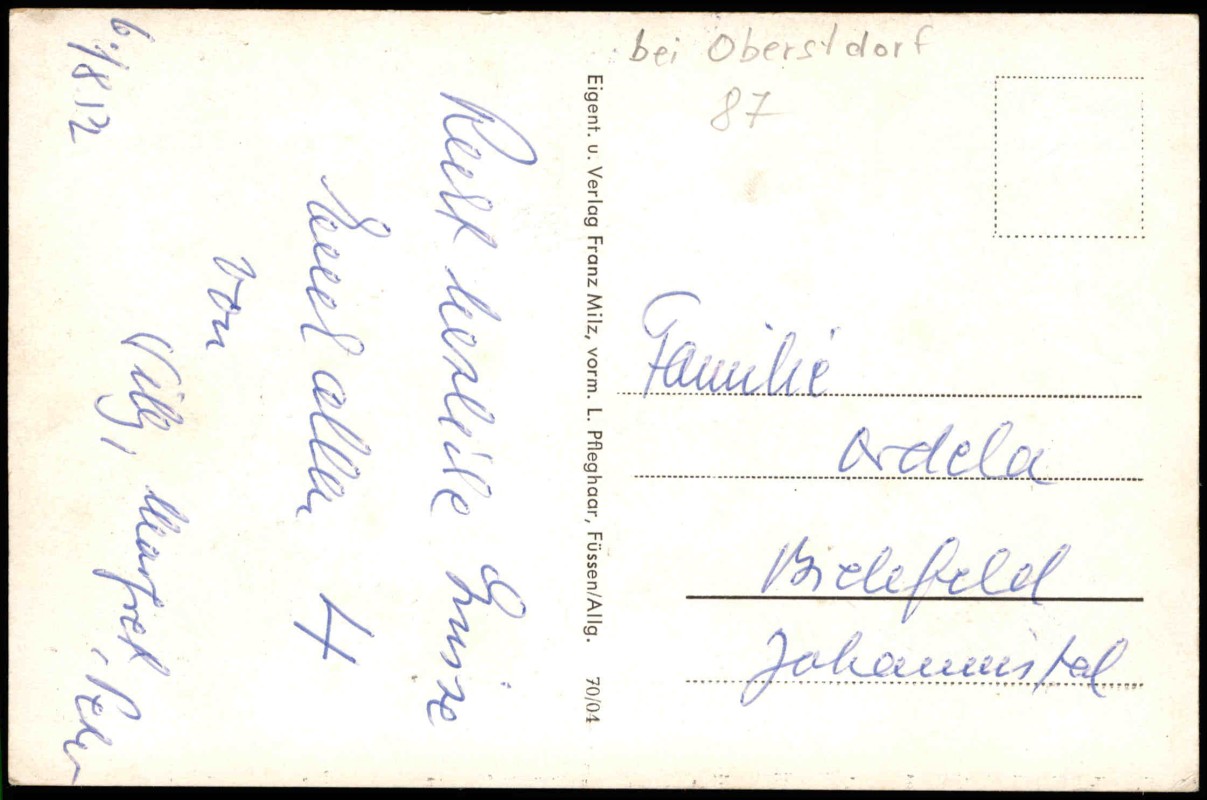 bei Oberstdorf
87
Eigent. u. Verlag Franz Milz, vorm. L. Pfleghaar, Füssen/Allg. 70/04
Recht herzliche Grüsse
Euch allen 4
von
Willy, Manfred,
Familie
Ardela
Bielefeld
Johannistal